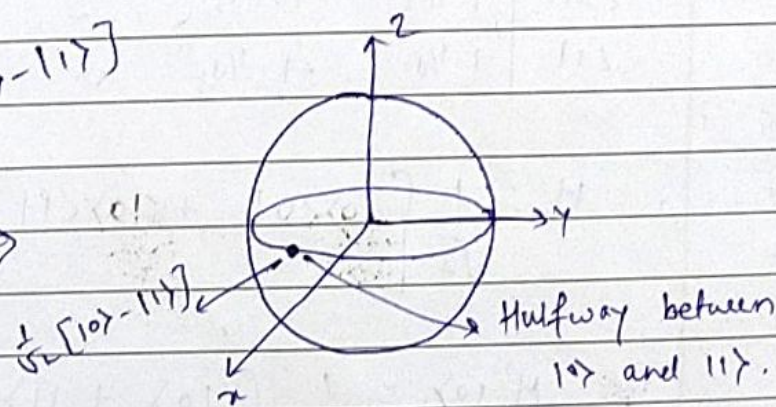 -|1⟩]
z
y
1/√2 [|0⟩-|1⟩]
x
Halfway between
|0⟩ and |1⟩.